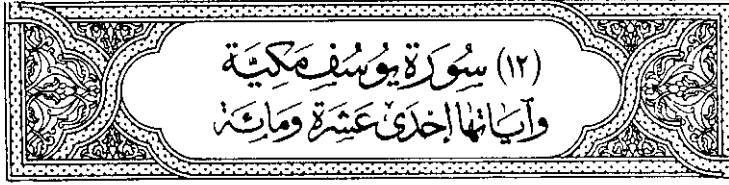 (١٢) سُورَة يوُسُف مَكيَّة
وَآيَاتهَا إحْدَىٰ عَشرَة وَمَائِة